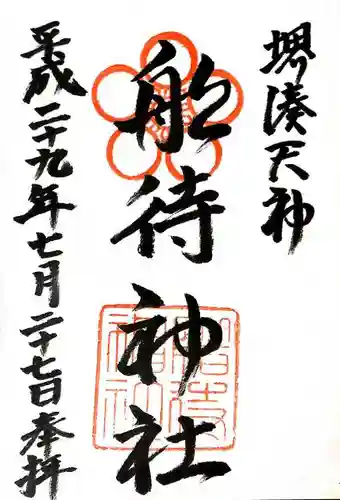 堺湊天神
船待神社
平成二十九年七月二十七日奉拝